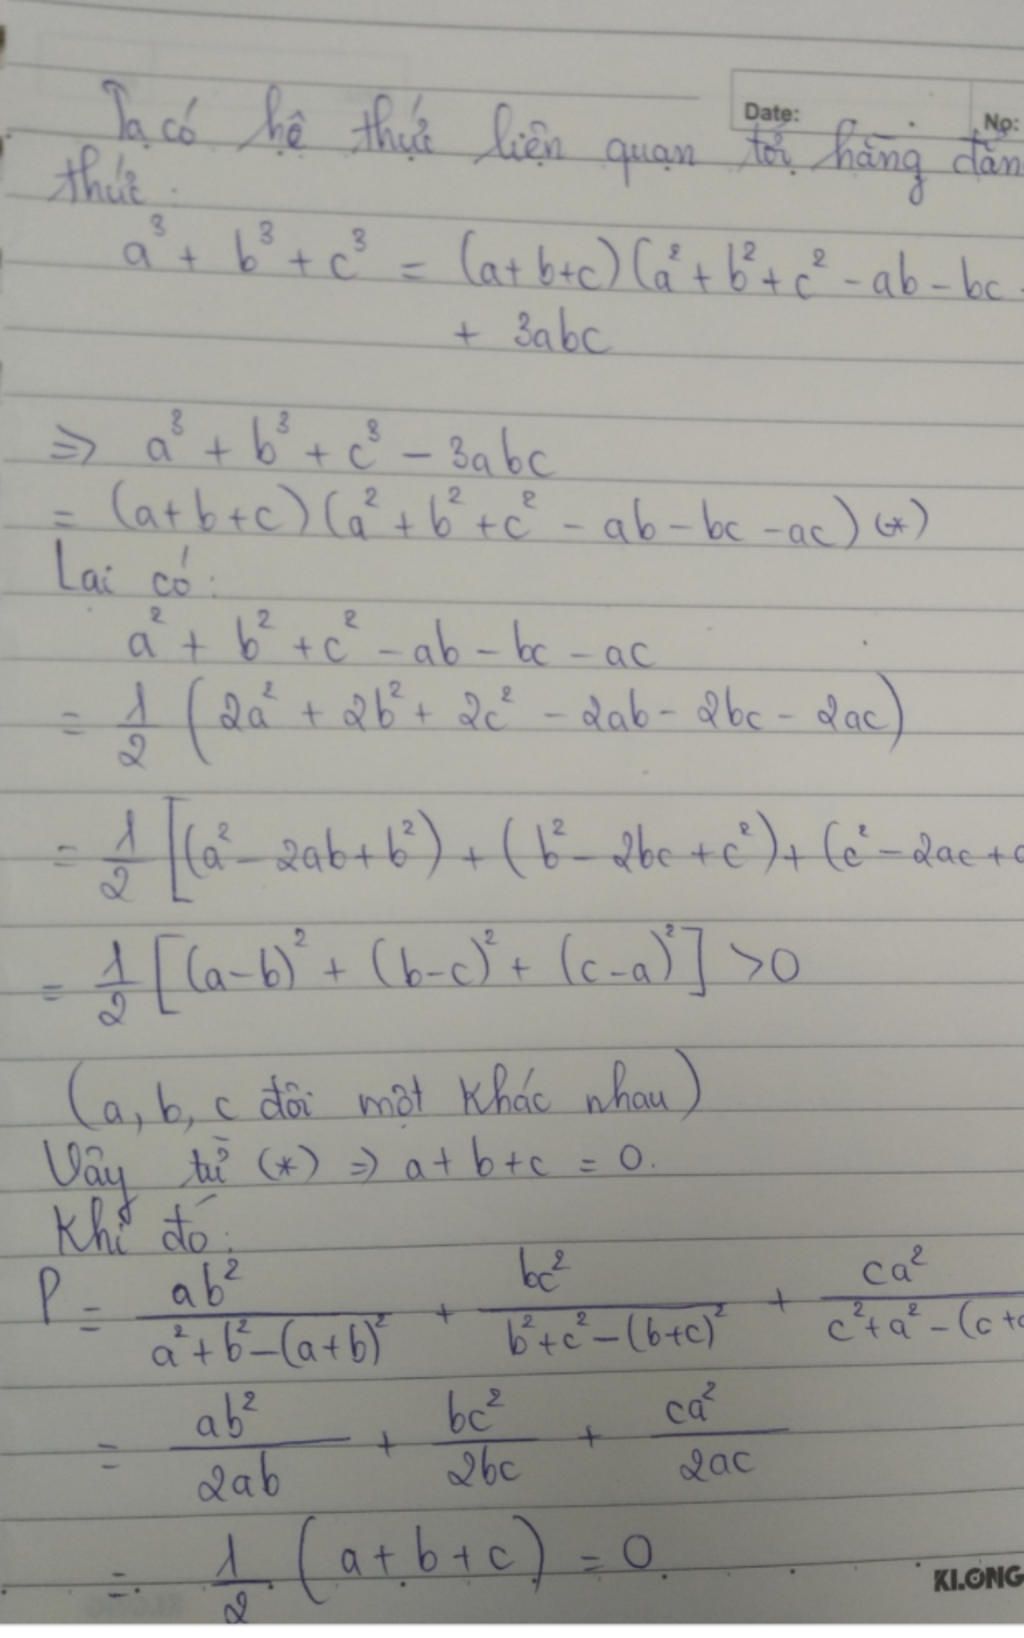 Date:
No:
Ta có hệ thức liên quan tới hằng đẳn
thức:
a³ + b³ + c³ = (a+b+c)(a² + b² + c² - ab - bc -
+ 3abc
=> a³ + b³ + c³ - 3abc
= (a+b+c)(a² + b² + c² - ab - bc - ac) (*)
Lại có:
a² + b² + c² - ab - bc - ac
= 1/2 (2a² + 2b² + 2c² - 2ab - 2bc - 2ac)
= 1/2 [(a² - 2ab + b²) + (b² - 2bc + c²) + (c² - 2ac + a
= 1/2 [(a-b)² + (b-c)² + (c-a)²] > 0
(a, b, c đôi một khác nhau)
Vậy từ (*) => a + b + c = 0.
Khi đó:
P = ab²/(a² + b² - (a+b)²) + bc²/(b² + c² - (b+c)²) + ca²/(c² + a² - (c+a
= ab²/2ab + bc²/2bc + ca²/2ac
= 1/2 (a + b + c) = 0
KLONG